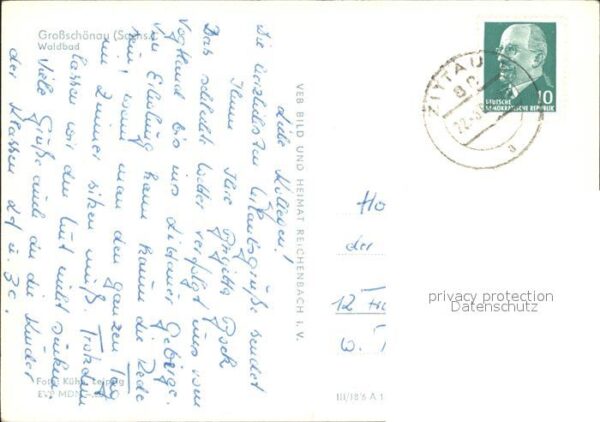 Großschönau (Sachs.)
Waldbad
Liebe Kollegen!
Die herzlichsten Urlaubsgrüße sendet
Ihnen Ihre Brigitte
Das schlechte Wetter verfolgt uns vom
Vogtland bis ins Zittauer Gebirge.
Von Erholung kann kaum die Rede
sein, wenn man den ganzen Tag
im Zimmer sitzen muß. Trotzdem
lassen wir den Mut nicht sinken.
Viele Grüße auch an die Kinder
der Klassen 2d u. 3c.
Foto: Kühn, Leipzig
EVP MDN
VEB BILD UND HEIMAT REICHENBACH I. V.
III/18/6 A 1
ZITTAU
a
10
DEUTSCHE
DEMOKRATISCHE REPUBLIK
Ho
der
12
privacy protection
Datenschutz